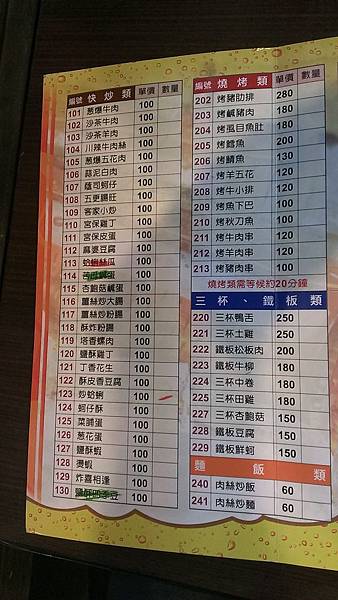 編號 快炒類 單價 數量
101 蔥爆牛肉 100
102 沙茶牛肉 100
103 沙茶羊肉 100
104 川辣牛肉絲 100
105 蔥爆五花肉 100
106 蒜泥白肉 100
107 蔭司蚵仔 100
108 五更腸旺 100
109 客家小炒 100
110 宮保雞丁 100
111 宮保皮蛋 100
112 麻婆豆腐 100
113 蛤蜊絲瓜 100
114 苦瓜鹹蛋 100
115 杏鮑菇鹹蛋 100
116 薑絲炒大腸 100
117 薑絲炒粉腸 100
118 酥炸粉腸 100
119 塔香螺肉 100
120 鹽酥雞丁 100
121 丁香花生 100
122 酥皮香豆腐 100
123 炒蛤蜊 100
124 蚵仔酥 100
125 菜脯蛋 100
126 蔥花蛋 100
127 鹽酥蝦 100
128 燙蝦 100
129 炸喜相逢 100
130 鹽酥四季豆 100
編號 燒烤類 單價 數量
202 烤豬肋排 280
203 烤鹹豬肉 180
204 烤虱目魚肚 180
205 烤鱈魚 200
206 烤鯖魚 130
207 烤羊五花 120
208 烤牛小排 120
209 烤魚下巴 100
210 烤秋刀魚 100
211 烤牛肉串 100
212 烤羊肉串 100
213 烤豬肉串 100
燒烤類需等候約20分鐘
三杯、鐵板類
220 三杯鴨舌 250
221 三杯土雞 250
222 鐵板松板肉 200
223 鐵板牛柳 180
224 三杯中卷 180
225 三杯田雞 180
227 三杯杏鮑菇 150
228 鐵板豆腐 150
229 鐵板鮮蚵 150
麵飯類
240 肉絲炒飯 60
241 肉絲炒麵 60